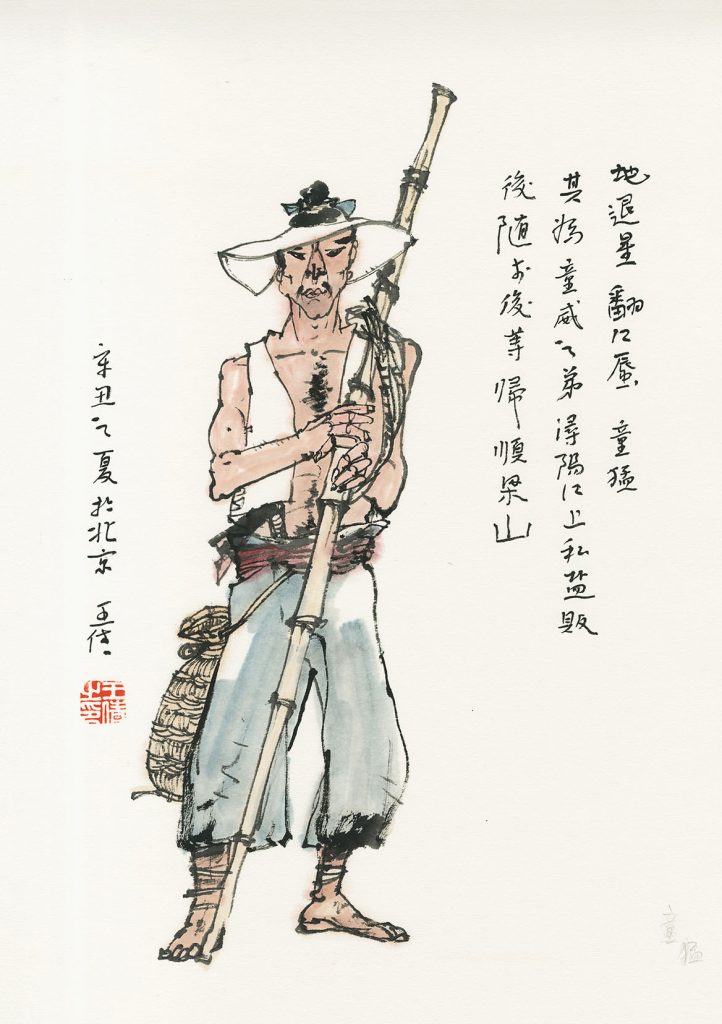 地退星 翻江蜃 童猛
其為童威之弟潯陽江上私盐販
後随後等歸順梁山
辛丑之夏於北京 王
童猛